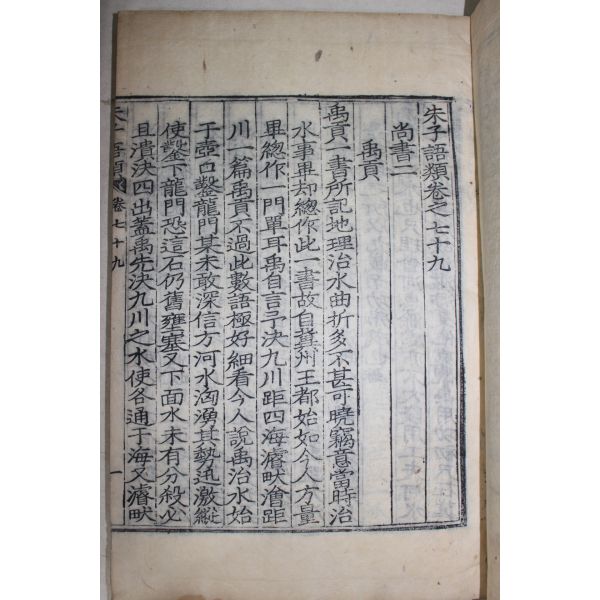 朱子語類卷之七十九
尚書二
禹貢
禹貢一書所記地理治水曲折多不甚可曉竊意當時治
水事畢却總作此一書故自冀州王都始如今人方量
畢總作一門單耳禹自言予決九川距四海濬畎澮距
川一篇禹貢不過此數語極好細看今人說禹治水始
于壺口鑿龍門某未敢深信方河水洶湧其勢迅激縱
使鑿下龍門恐這石仍舊壅塞又下面水未有分殺必
且潰決四出蓋禹先決九川之水使各通于海又濬畎
朱子語類 卷七十九 一